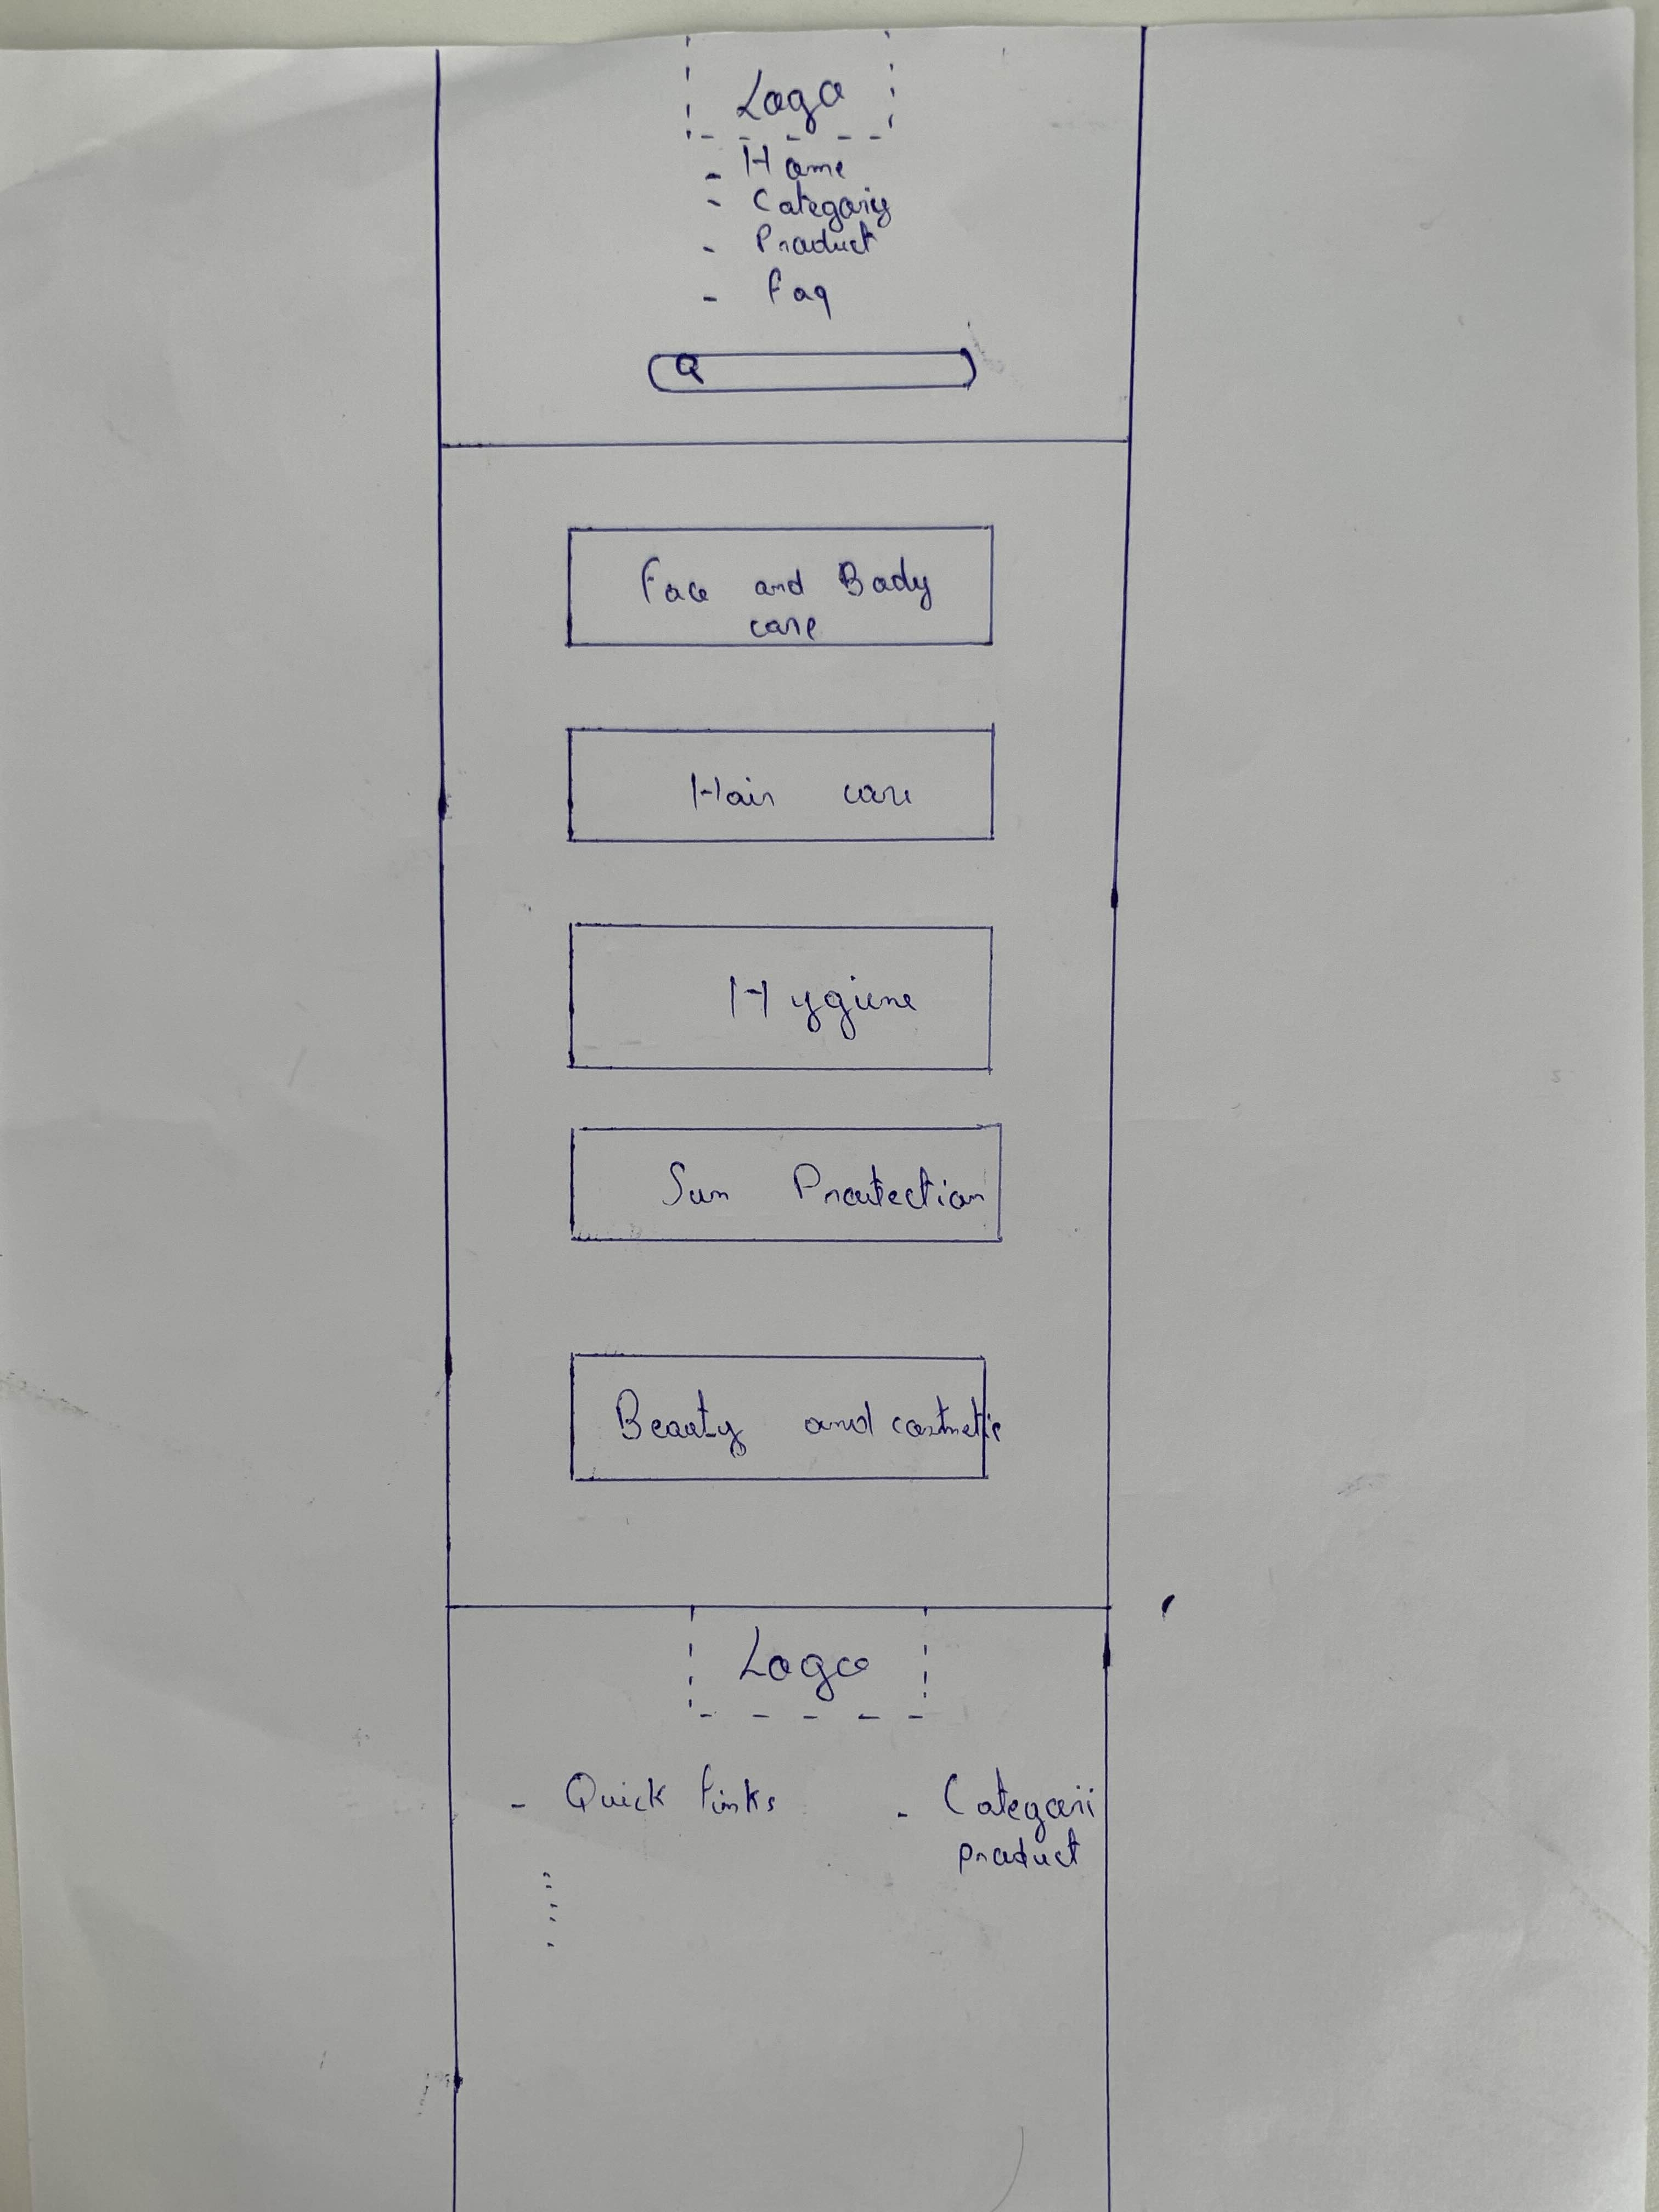 Logo
- Home
- Category
- Product
- Faq
Face and Body
care
Hair care
Hygiene
Sun Protection
Beauty and cosmetic
Logo
- Quick links - Categorii
product